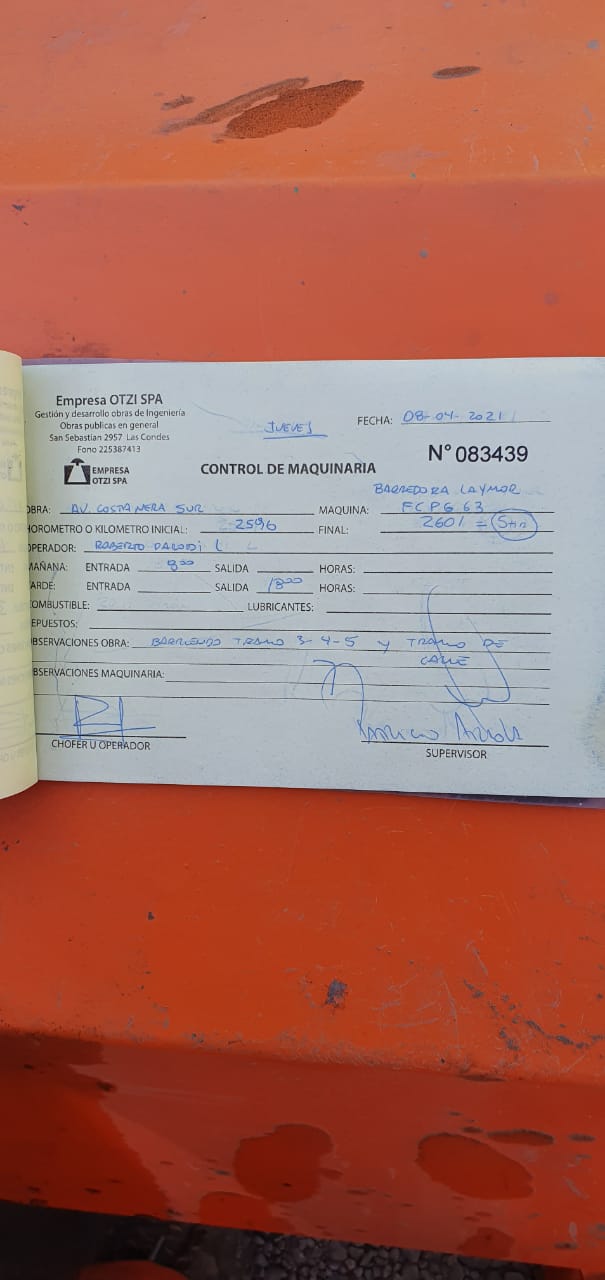 Empresa OTZI SPA
Gestión y desarrollo obras de Ingeniería
Obras publicas en general
San Sebastian 2957 Las Condes
Fono 225387413
EMPRESA
OTZI SPA
JUEVES
FECHA: 08-04-2021
N° 083439
CONTROL DE MAQUINARIA
BARREDORA LAYMOR
OBRA: AV. COSTANERA SUR MAQUINA: FCPG 63
HOROMETRO O KILOMETRO INICIAL: 2596 FINAL: 2601 =
OPERADOR: ROBERTO
MAÑANA: ENTRADA 8:00 SALIDA HORAS:
TARDE: ENTRADA SALIDA 18:00 HORAS:
COMBUSTIBLE: LUBRICANTES:
REPUESTOS:
OBSERVACIONES OBRA: BARRIENDO TRAMO 3-4-5 y TRAMO DE
CALLE
OBSERVACIONES MAQUINARIA:
CHOFER U OPERADOR
SUPERVISOR